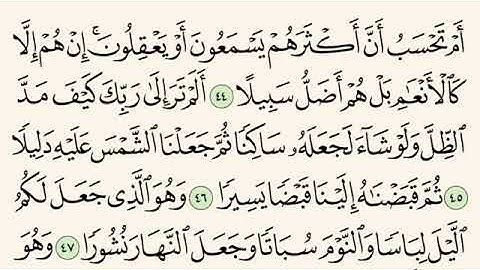 أَمْ تَحْسَبُ أَنَّ أَكْثَرَهُمْ يَسْمَعُونَ أَوْ يَعْقِلُونَ ۚ إِنْ هُمْ إِلَّا
كَالْأَنْعَٰمِ بَلْ هُمْ أَضَلُّ سَبِيلًا ٤٤ أَلَمْ تَرَ إِلَىٰ رَبِّكَ كَيْفَ مَدَّ
الظِّلَّ وَلَوْ شَآءَ لَجَعَلَهُۥ سَاكِنًا ثُمَّ جَعَلْنَا الشَّمْسَ عَلَيْهِ دَلِيلًا
٤٥ ثُمَّ قَبَضْنَٰهُ إِلَيْنَا قَبْضًا يَسِيرًا ٤٦ وَهُوَ الَّذِى جَعَلَ لَكُمُ
الَّيْلَ لِبَاسًا وَالنَّوْمَ سُبَاتًا وَجَعَلَ النَّهَارَ نُشُورًا ٤٧ وَهُوَ